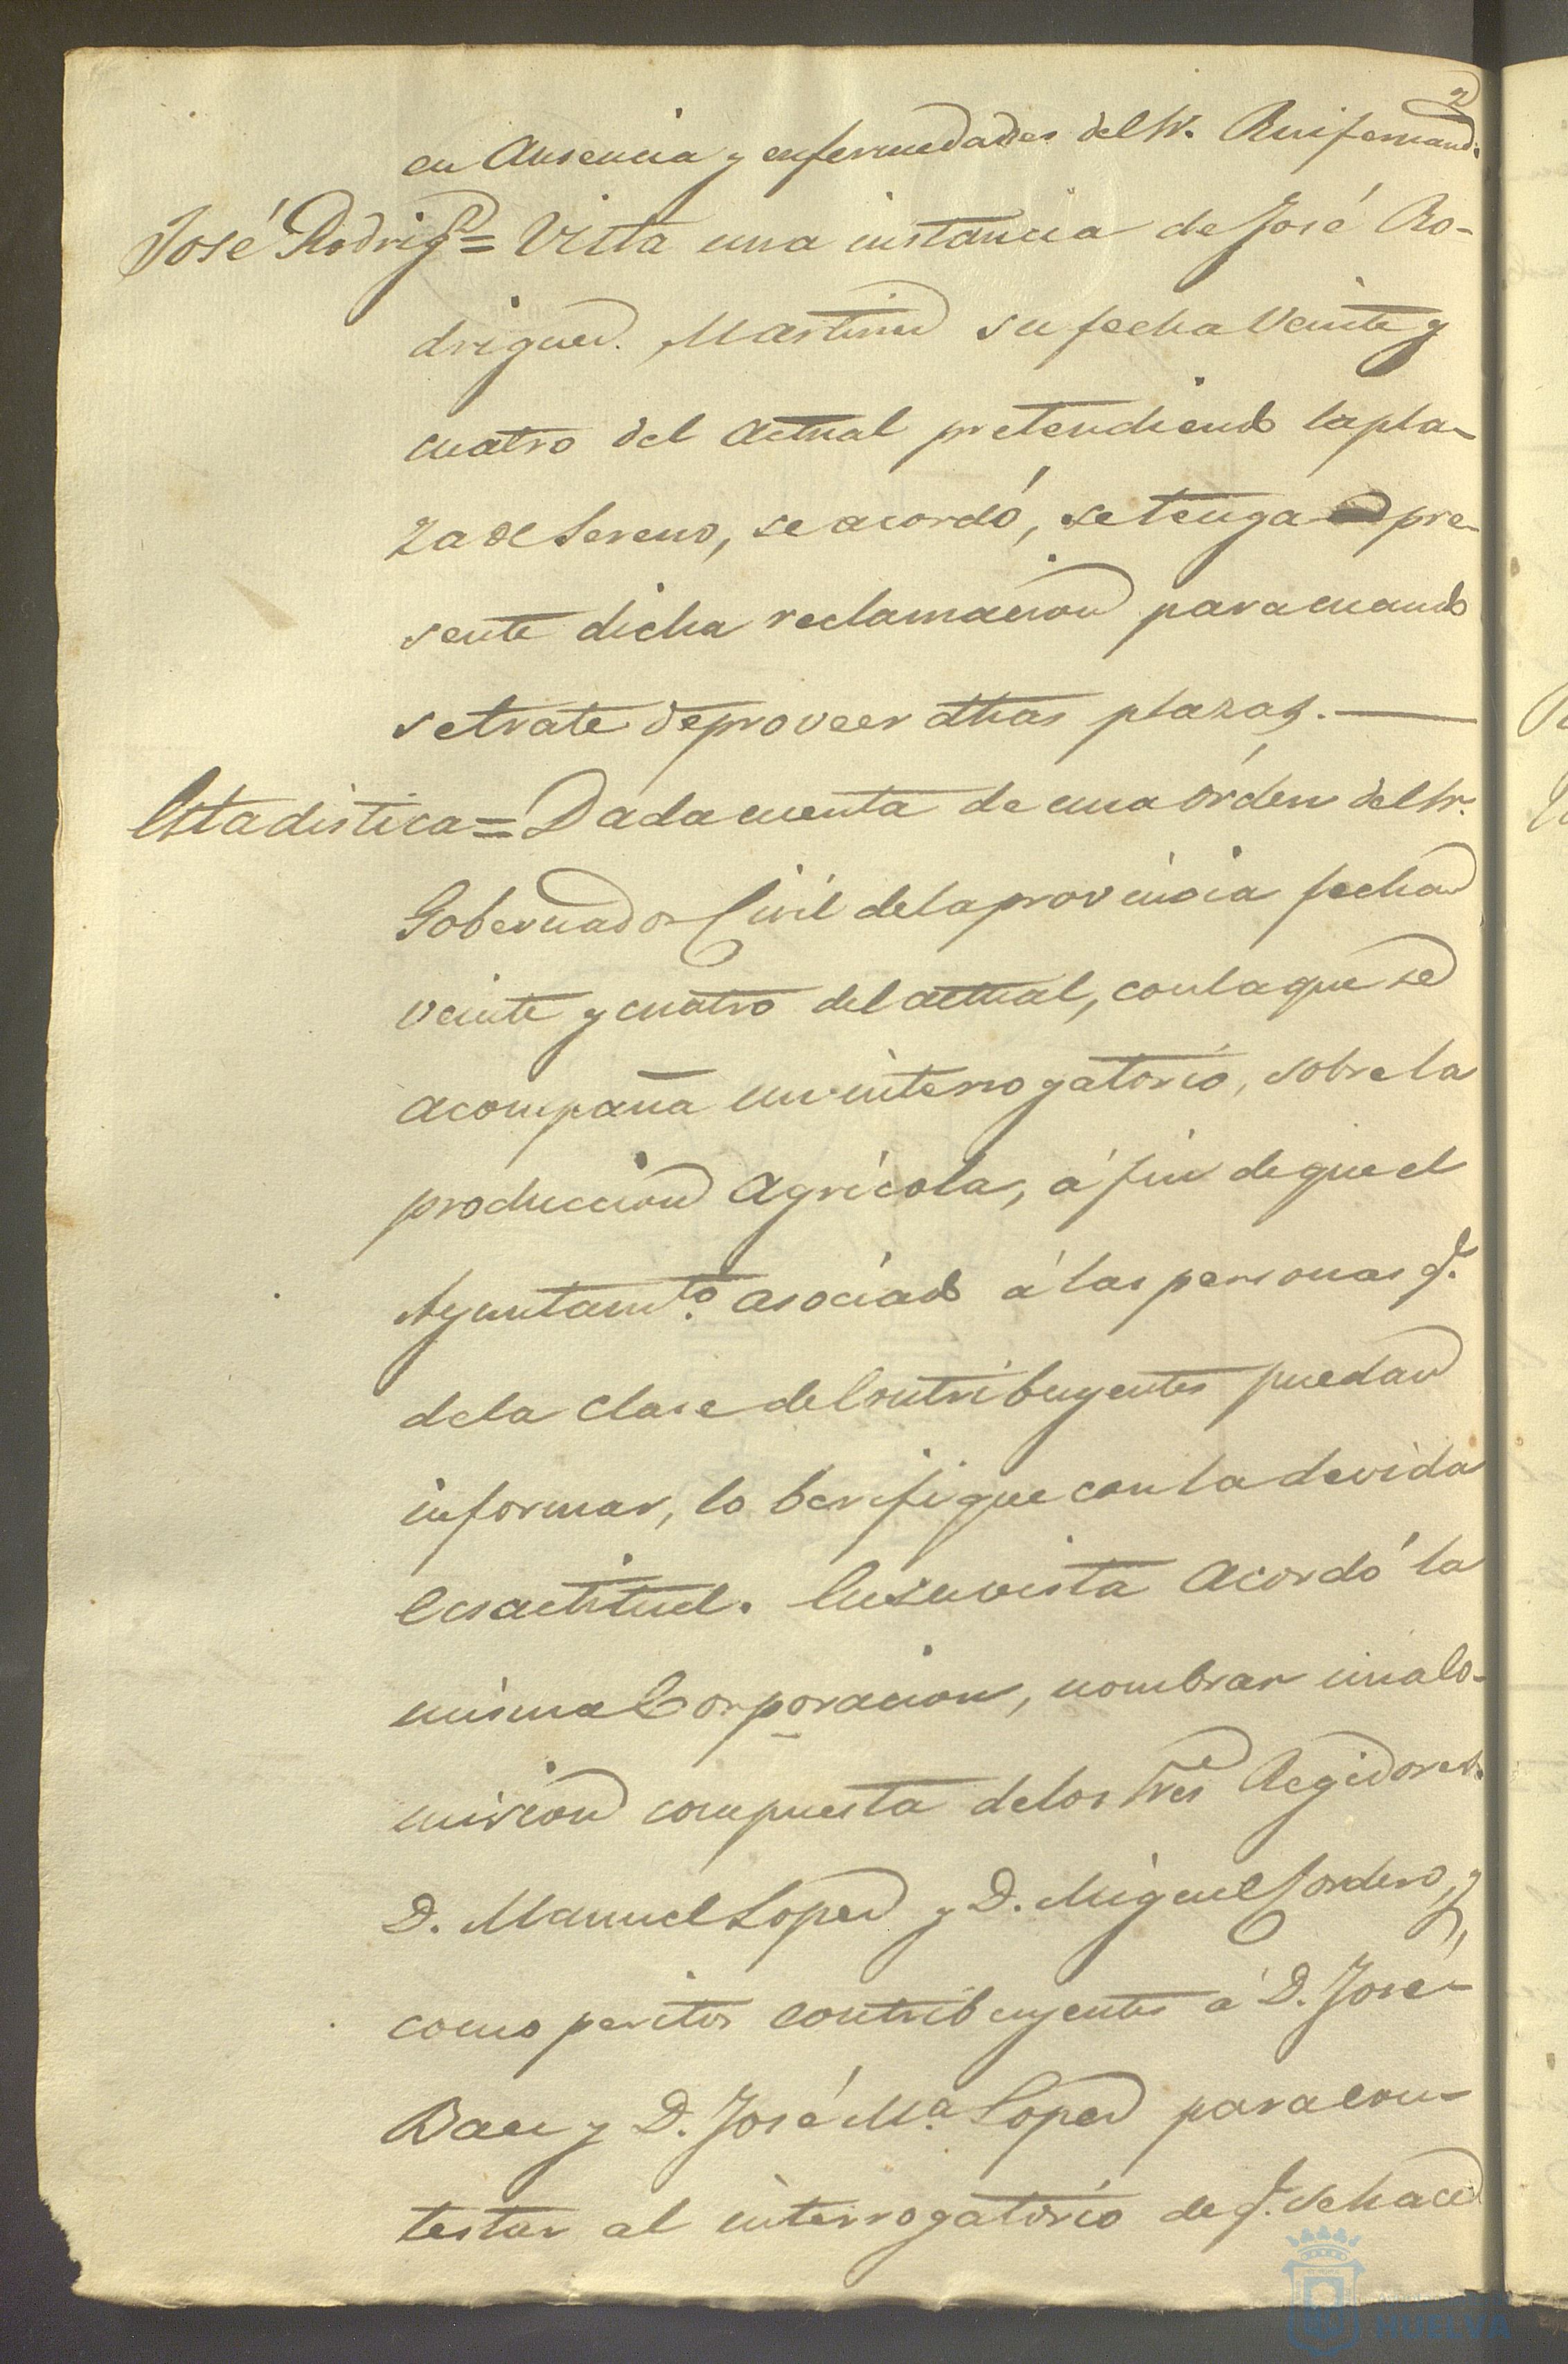 en Ausencia y enfermedades del Sr. Ruifernand.z
José Rodrigz = Vista una instancia de José Ro-
driguez. Martinez su fecha Veinte y
cuatro del actual pretendiendo la pla-
za de Sereno, se acordó, se tenga pre-
sente dicha reclamacion para cuando
se trate de proveer dhas plazas. —
Estadistica = Dada cuenta de una órden del Sr.
Gobernador Civil de la provincia fecha
veinte y cuatro del actual, con la que se
acompaña un interrogatorio, sobre la
produccion Agrícola, á fin de que el
Ayuntamto. asociado á las personas q.e
de la clase de Contribuyentes puedan
informar, lo berifique con la devida
Ecsactitud. En su vista Acordó la
misma Corporacion, nombrar una Co-
mision compuesta de los Sres Regidores.
D. Manuel Lopez y D. Miguel Cordero, y,
como peritos contribuyentes á D. José
Baez y D. José Ma. Lopez para con-
testar al interrogatorio de q.e se hace
HUELVA